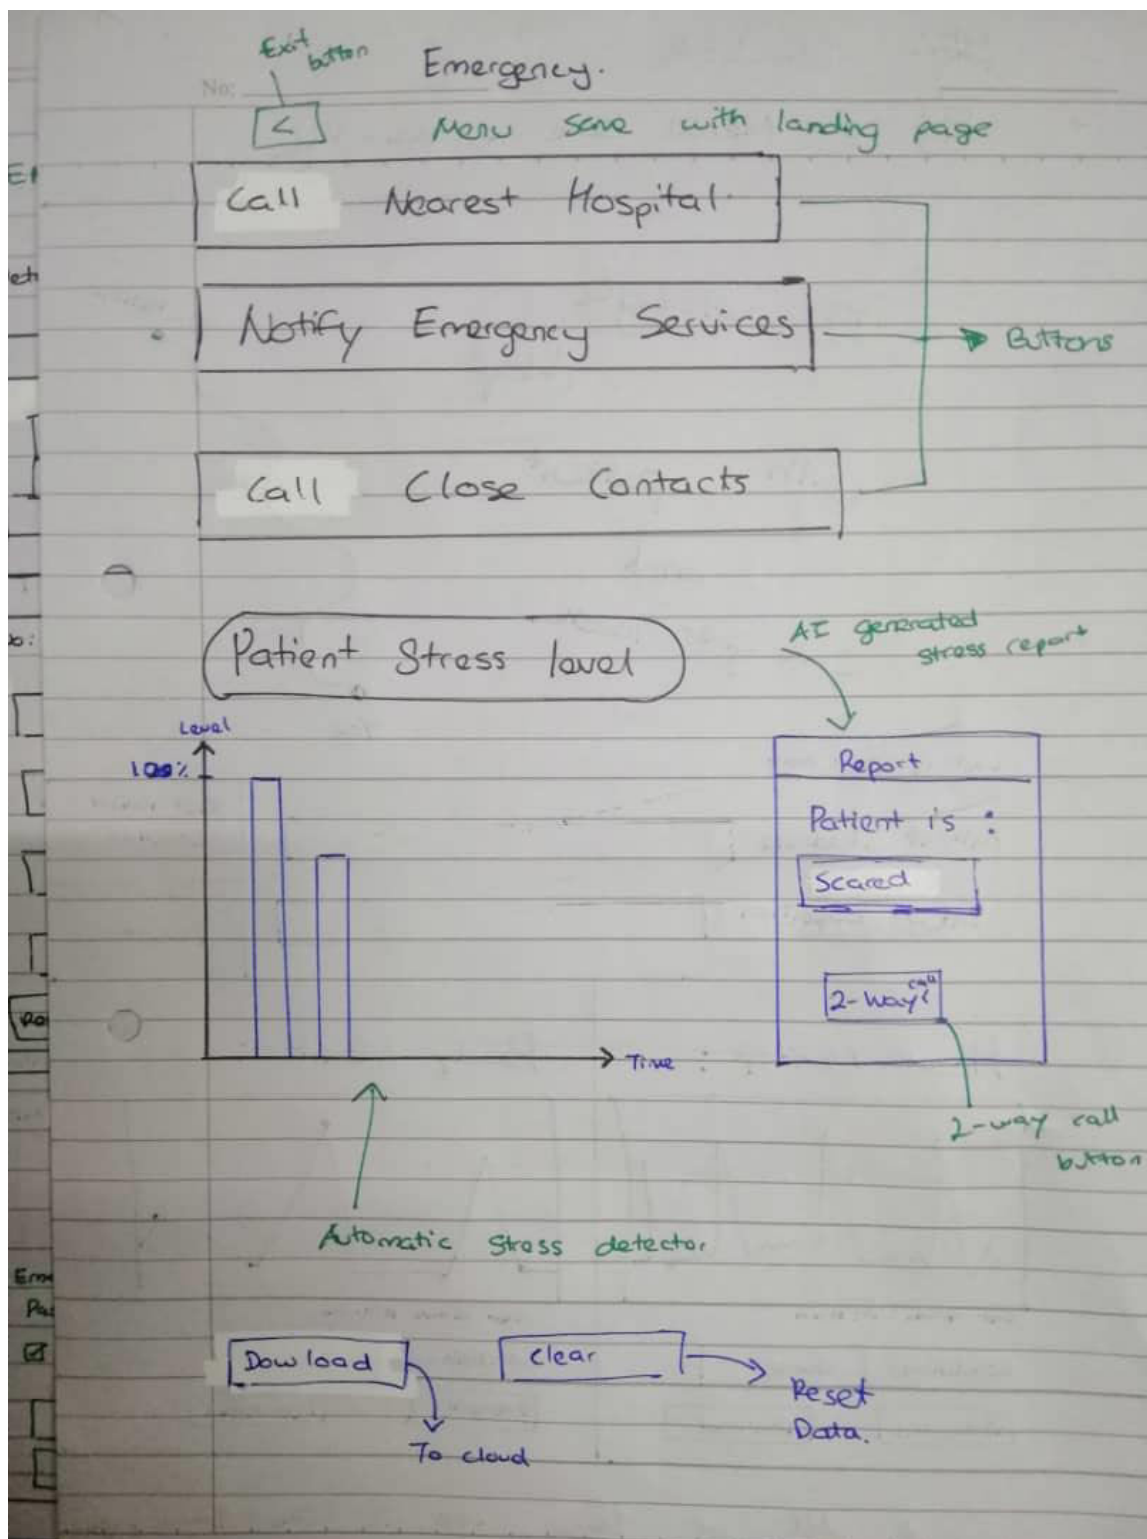 Exit button
Emergency.
No:
<
Menu same with landing page
Call Nearest Hospital.
Notify Emergency Services
Buttons
Call Close Contacts
Patient Stress level
AI generated
stress report
Level
100%
Report
Patient is :
Scared
2-way call
Time
2-way call
button
Automatic stress detector.
Dowload
Clear
Reset
Data.
To cloud